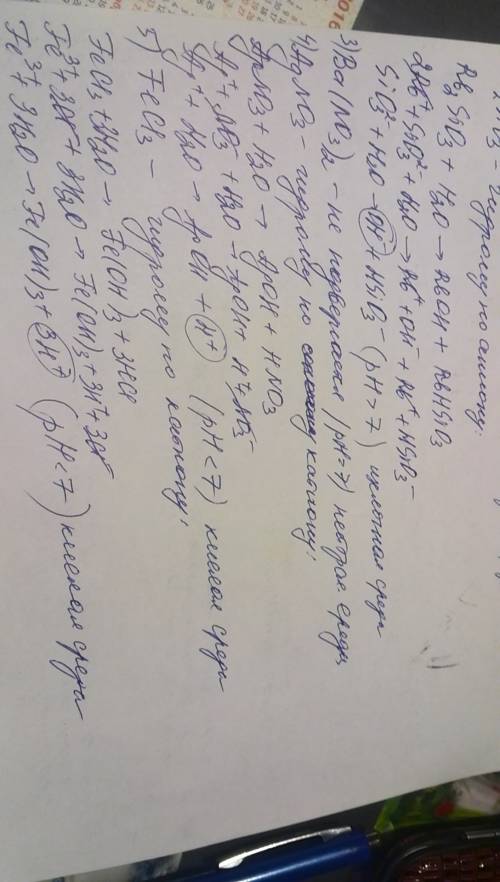 гидролиз по аниону.
Rb2SiO3 + H2O → RbOH + RbHSiO3
2Rb⁺ + SiO3²⁻ + H2O → Rb⁺ + OH⁻ + Rb⁺ + HSiO3⁻
SiO3²⁻ + H2O → OH⁻ + HSiO3⁻ (pH > 7) щелочная среда
3) Ba(NO3)2 – не подвергается (pH = 7) нейтрал среда
4) AgNO3 – гидролиз по катиону;
AgNO3 + H2O → AgOH + HNO3
Ag⁺ + NO3⁻ + H2O → AgOH + H⁺ + NO3⁻
Ag⁺ + H2O → AgOH + H⁺ (pH < 7) кислая среда
5) FeCl3 – гидролиз по катиону;
FeCl3 + 3H2O → Fe(OH)3 + 3HCl
Fe³⁺ + 3Cl⁻ + 3H2O → Fe(OH)3 + 3H⁺ + 3Cl⁻
Fe³⁺ + 3H2O → Fe(OH)3 + 3H⁺ (pH < 7) кислая среда